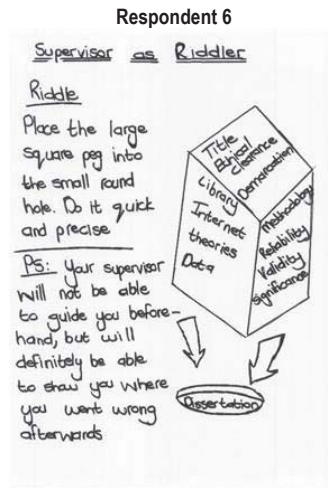 Respondent 6
Supervisor as Riddler
Riddle
Place the large
square peg into
the small round
hole. Do it quick
and precise
PS: Your supervisor
will not be able
to guide you before-
hand, but will
definitely be able
to show you where
you went wrong
afterwards
Title
Ethical
clearance
Demarcation
Library
Internet
theories
Data
Methodology
Reliability
Validity
Significance
Dissertation